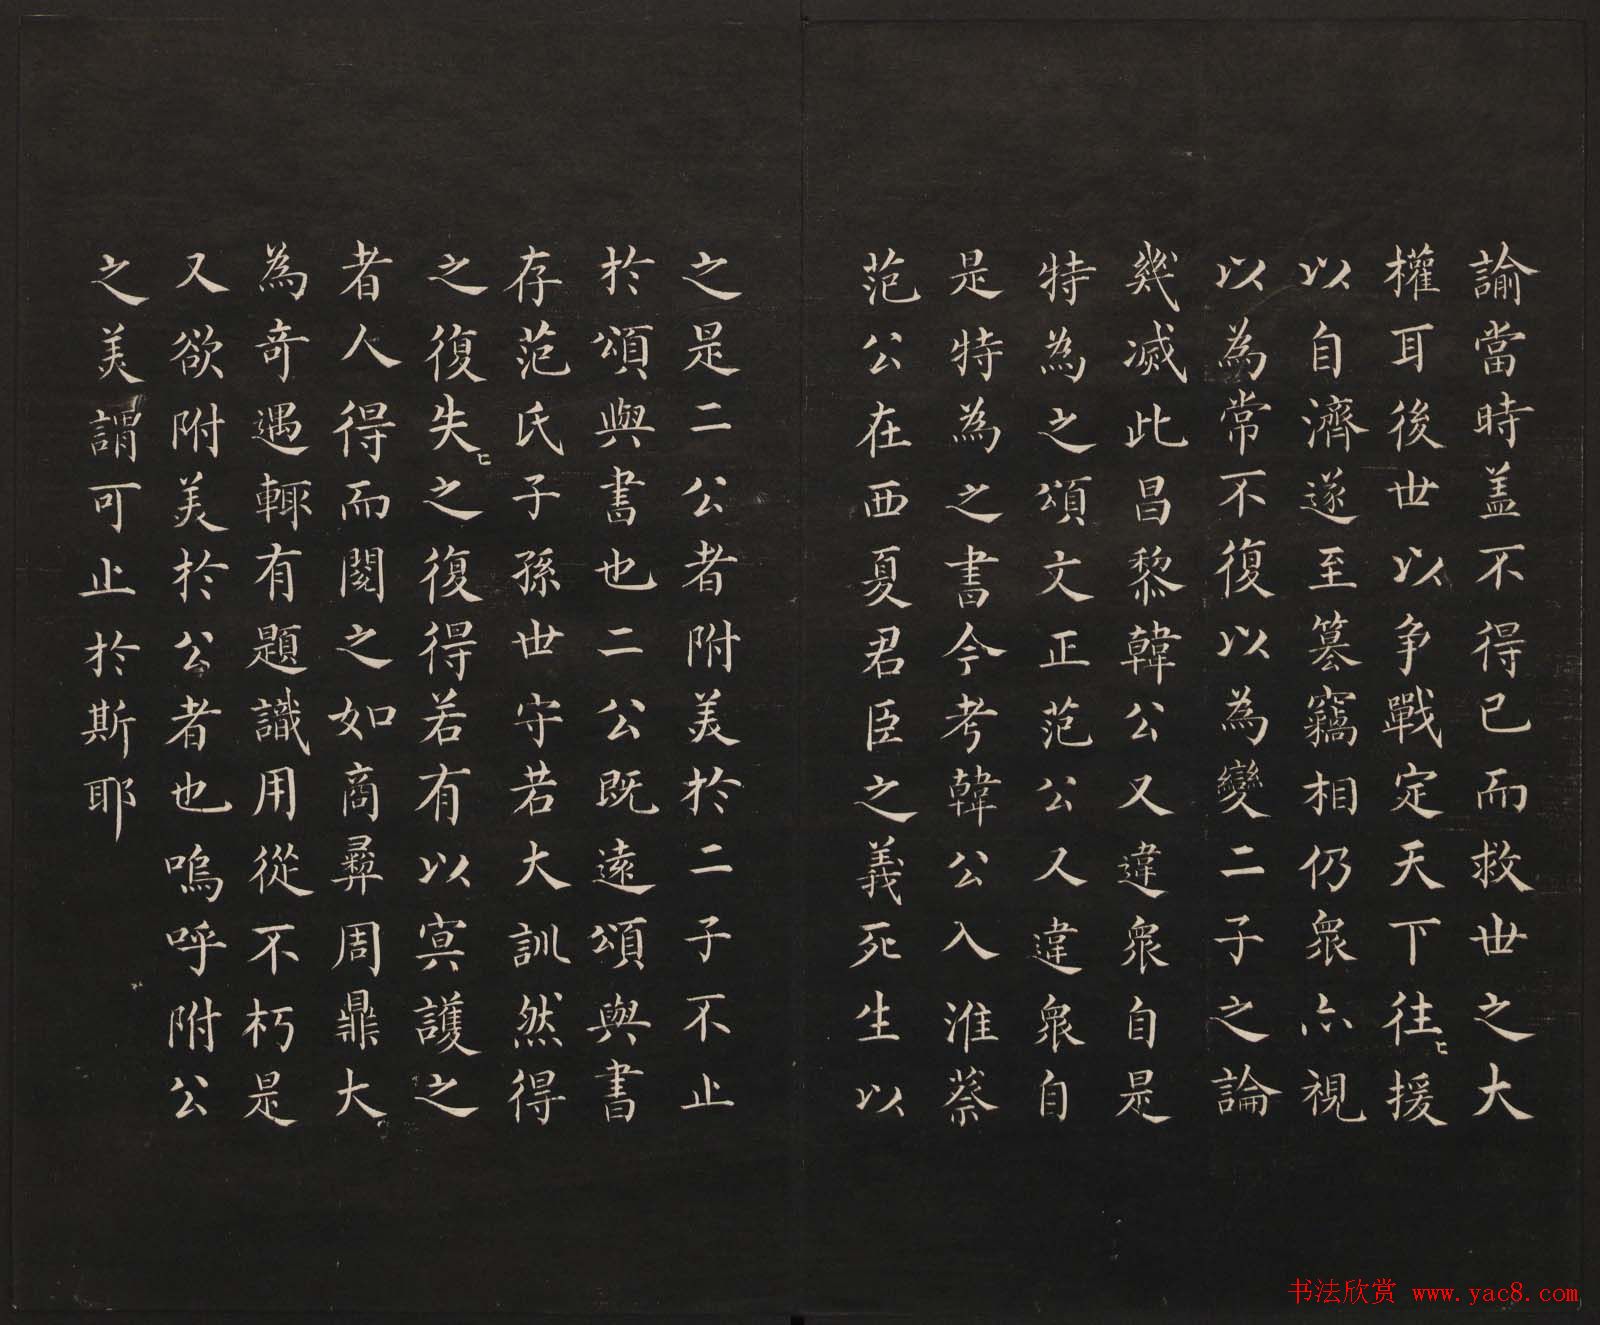 諭當時盖不得已而救世之大
權耳後世以争戰定天下往〻援
以自濟遂至篡竊相仍衆亦視
以為常不復以為變二子之論
幾滅此昌黎韓公又違衆自是
特為之頌文正范公又違衆自
是特為之書今考韓公入淮蔡
范公在西夏君臣之義死生以
之是二公者附美於二子不止
於頌與書也二公既遠頌與書
存范氏子孫世守若大訓然得
之復失〻之復得若有以冥護之
者人得而閱之如商彝周鼎大
為奇遇輒有題識用從不朽是
又欲附美於公者也嗚呼附公
之美謂可止於斯耶
书法欣赏 www.yac8.com